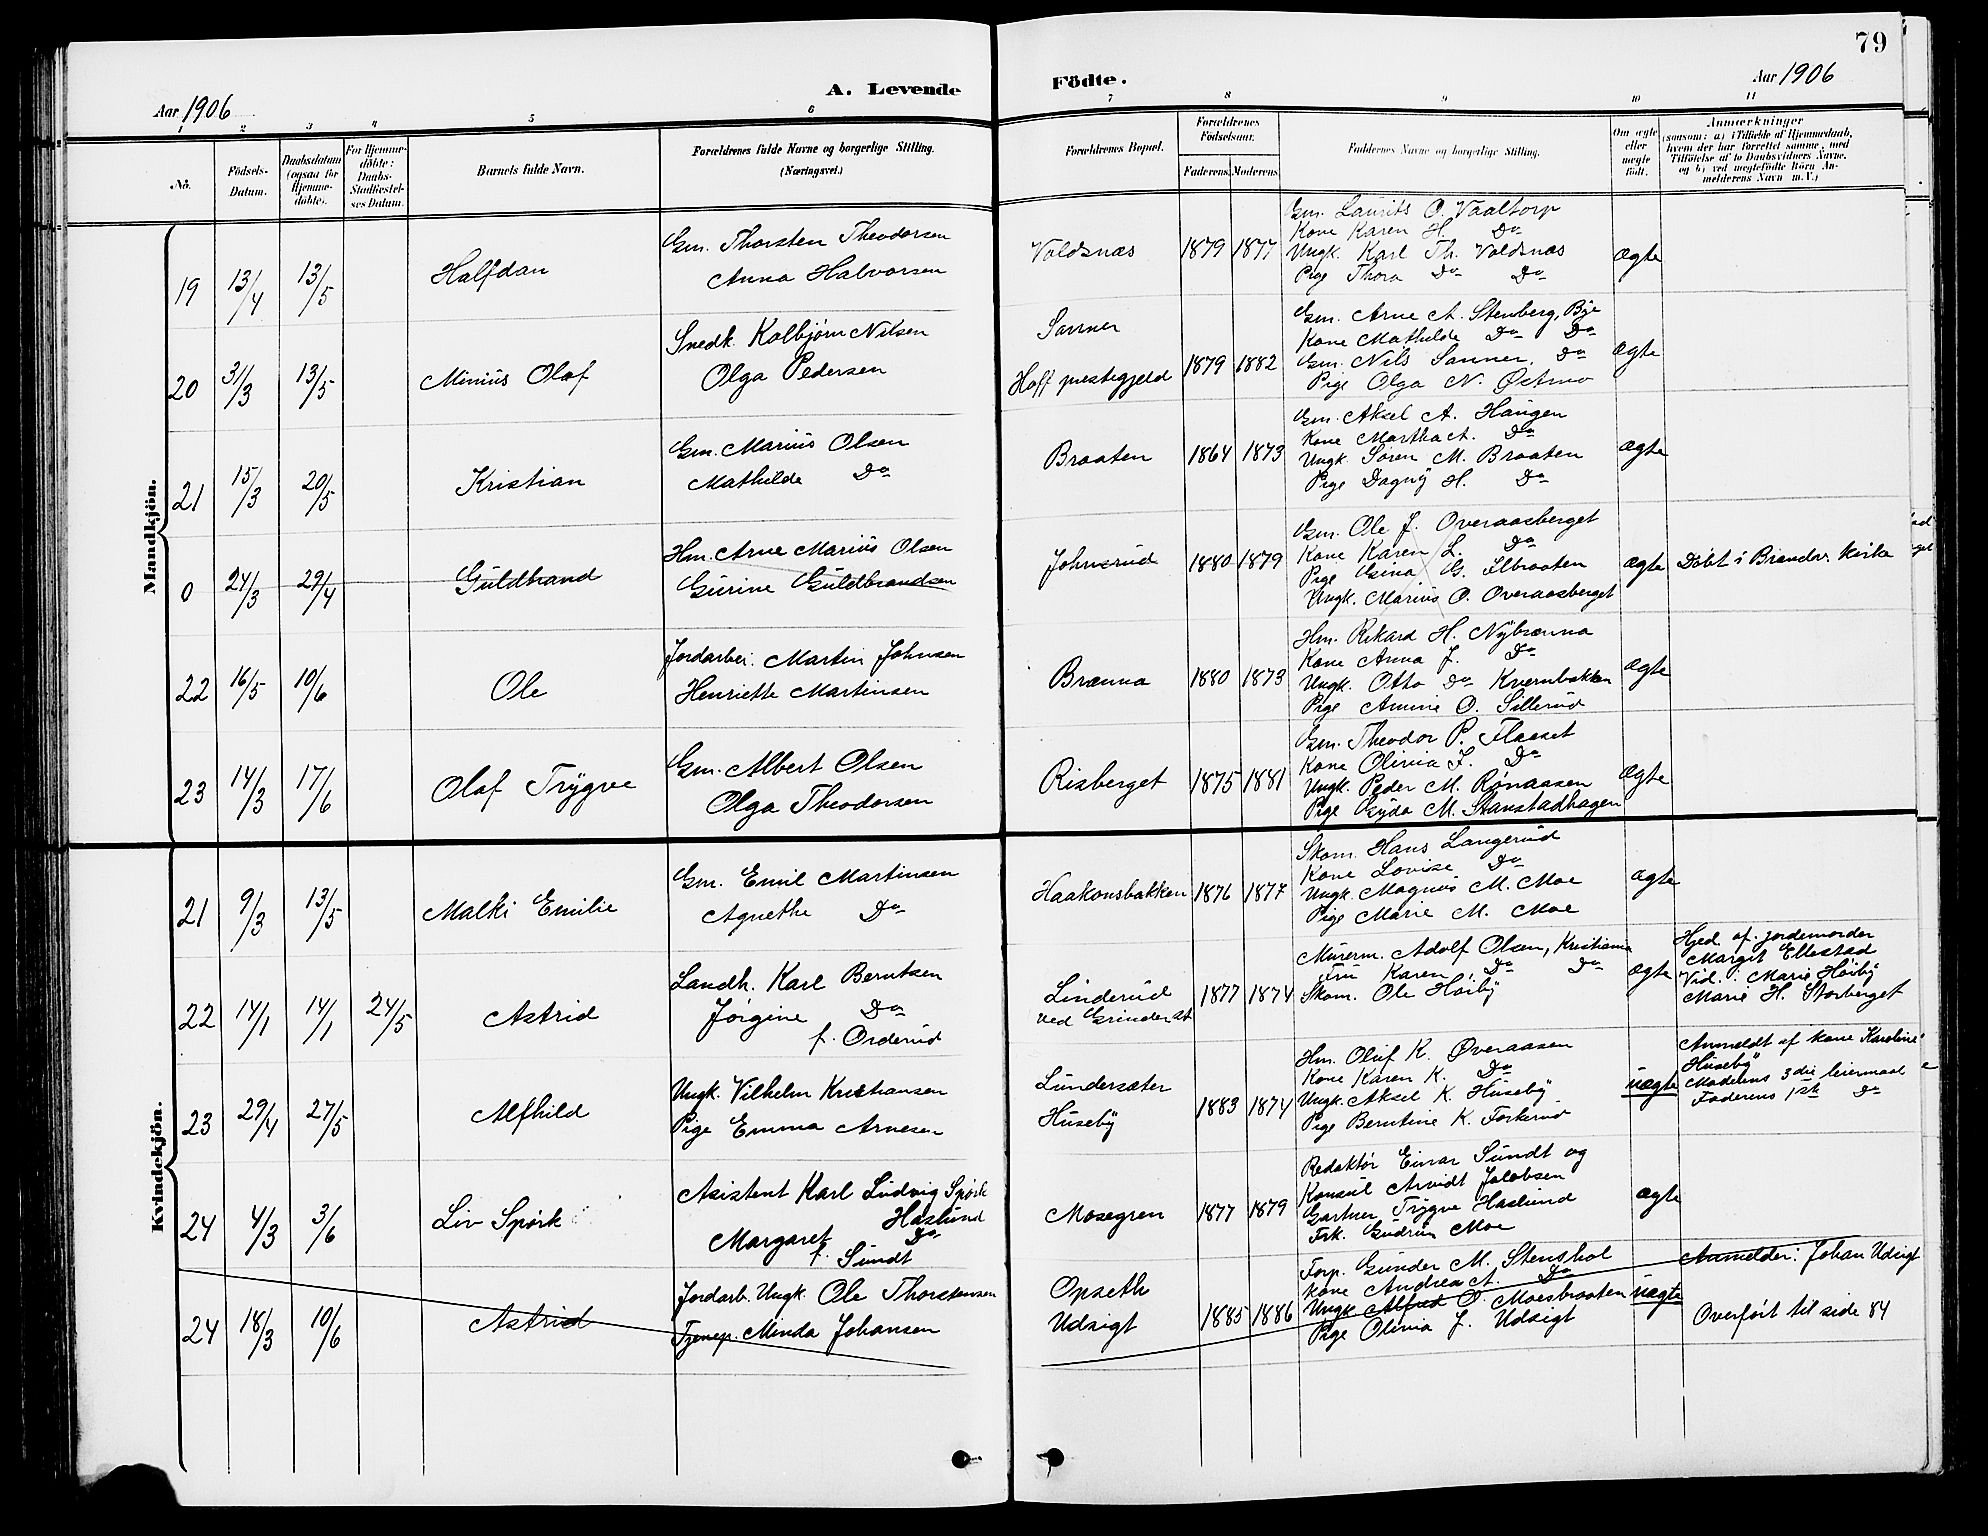 79
A. Levende Födte.
Aar 1906
Aar 1906
1 2 3 4 5 6 7 8 9 10 11
No.
Födsels-Datum.
Daabsdatum (ogsaa for Hjemme-döbte).
For Hjemme-döbte: Daabs-Stadfæstel-ses Datum.
Barnets fulde Navn.
Forældrenes fulde Navne og borgerlige Stilling. (Næringsvei.)
Forældrenes Bopæl.
Forældrenes Födselsaar.
Faderens. Moderens.
Faddernes Navne og borgerlige Stilling.
Om ægte eller uægte födt.
Anmærkninger
(saasom: a) i Tilfælde af Hjemmedaab, hvem der har forrettet samme, med Tilföielse af to Daabsvidners Navne. og b) ved uægtefödte Börn Anmelderens Navn m. V.)
Mandkjön.
19 13/4 13/5 Halfdan
Gm. Thorsten Theodorsen
Anna Halvorsen
Voldsnæs 1879 1877
Gm. Laurits O. Vaaltorp
Kone Karen H. Do
Ungk. Karl Th. Voldsnæs
Pige Thora Do Do
ægte
20 31/3 13/5 Minius Olaf
Snedk. Kolbjørn Nilsen
Olga Pedersen
Sanner
Hoff prestegjeld 1879 1882
Gm. Arne A. Stenberg, Bye
Kone Mathilde Do Do
Gm. Nils Sanner, Do
Pige Olga N. Østmo
ægte
21 15/3 20/5 Kristian
Gm. Marius Olsen
Mathilde Do
Braaten 1864 1873
Gm. Aksel A. Haugen
Kone Martha A. Do
Ungk. Søren M. Braaten
Pige Dagny H. Do
ægte
0 24/3 29/4 Guldbrand
Hm. Arne Marius Olsen
Gurine Guldbrandsen
Johnsrud 1880 1879
Gm. Ole J. Overaasberget
Kone Karen L. Do
Pige Gina G. Ilbraaten
Ungk. Marius O. Overaasberget
ægte
Døbt i Brandv. kirke
22 16/5 10/6 Ole
Jordarbei. Martin Johnsen
Henriette Martinsen
Brænna 1880 1873
Hm. Rikard H. Nybrænna
Kone Anna J. Do
Ungk. Otto Do Kvernbakken
Pige Amine O. Sillerud
ægte
23 14/3 17/6 Olaf Trygve
Gm. Albert Olsen
Olga Theodorsen
Risberget 1875 1881
Gm. Theodor P. Flaaset
Kone Olivia F. Do
Ungk. Peder M. Rønaasen
Pige Gyda M. Stanstadhagen
ægte
Kvindekjön.
21 9/3 13/5 Malki Emilie
Gm. Emil Martinsen
Agnethe Do
Haakonsbakken 1876 1877
Skom. Hans Langerud
Kone Lovise Do
Ungk. Magnus M. Moe
Pige Marie M. Moe
ægte
22 14/1 14/1 24/5 Astrid
Landh. Karl Berntsen
Jørgine Do
f. Orderud
Linderud
ved Grinder st 1877 1874
Murerm. Adolf Olsen, Kristiania
Fru Karen Do Do
Skom. Ole Høiby
ægte
Hjed. af. jordemorder
Margit Ellestad
Vid.: Marie Høiby
Marie H. Storberget
23 29/4 27/5 Alfhild
Ungk. Vilhelm Kristiansen
Pige Emma Arnesen
Lundersæter
Huseby 1883 1874
Hm. Oluf K. Øveraasen
Kone Karen K. Do
Ungk. Aksel K. Huseby
Pige Berntine K. Forkerud
uægte
Anmeldt af kone Karoline
Huseby
Moderens 3die leiermaal
Faderens 1ste Do
24 4/3 3/6 Liv Spørk
Asistent Karl Ludvig Spørk
Haslund
Margaret Do
f. Sundt
Mosegren 1877 1879
Redaktør Einar Sundt og
Konsul Arvidt Jakobsen
Gartner Trygve Haslund
Frk. Gudrun Moe
ægte
24 18/3 10/6 Astrid
Jordarb. Ungk. Ole Thorstensen
Tjenep. Minda Johansen
Opseth
Udsigt 1885 1886
Forp. Gunder M. Stenshol
Kone Andrea A. Do
Ungk. Alfred O. Moesbraaten
Pige Olivia J. Udsigt
uægte
Anmelder: Johan Udsigt
Overført til side 84